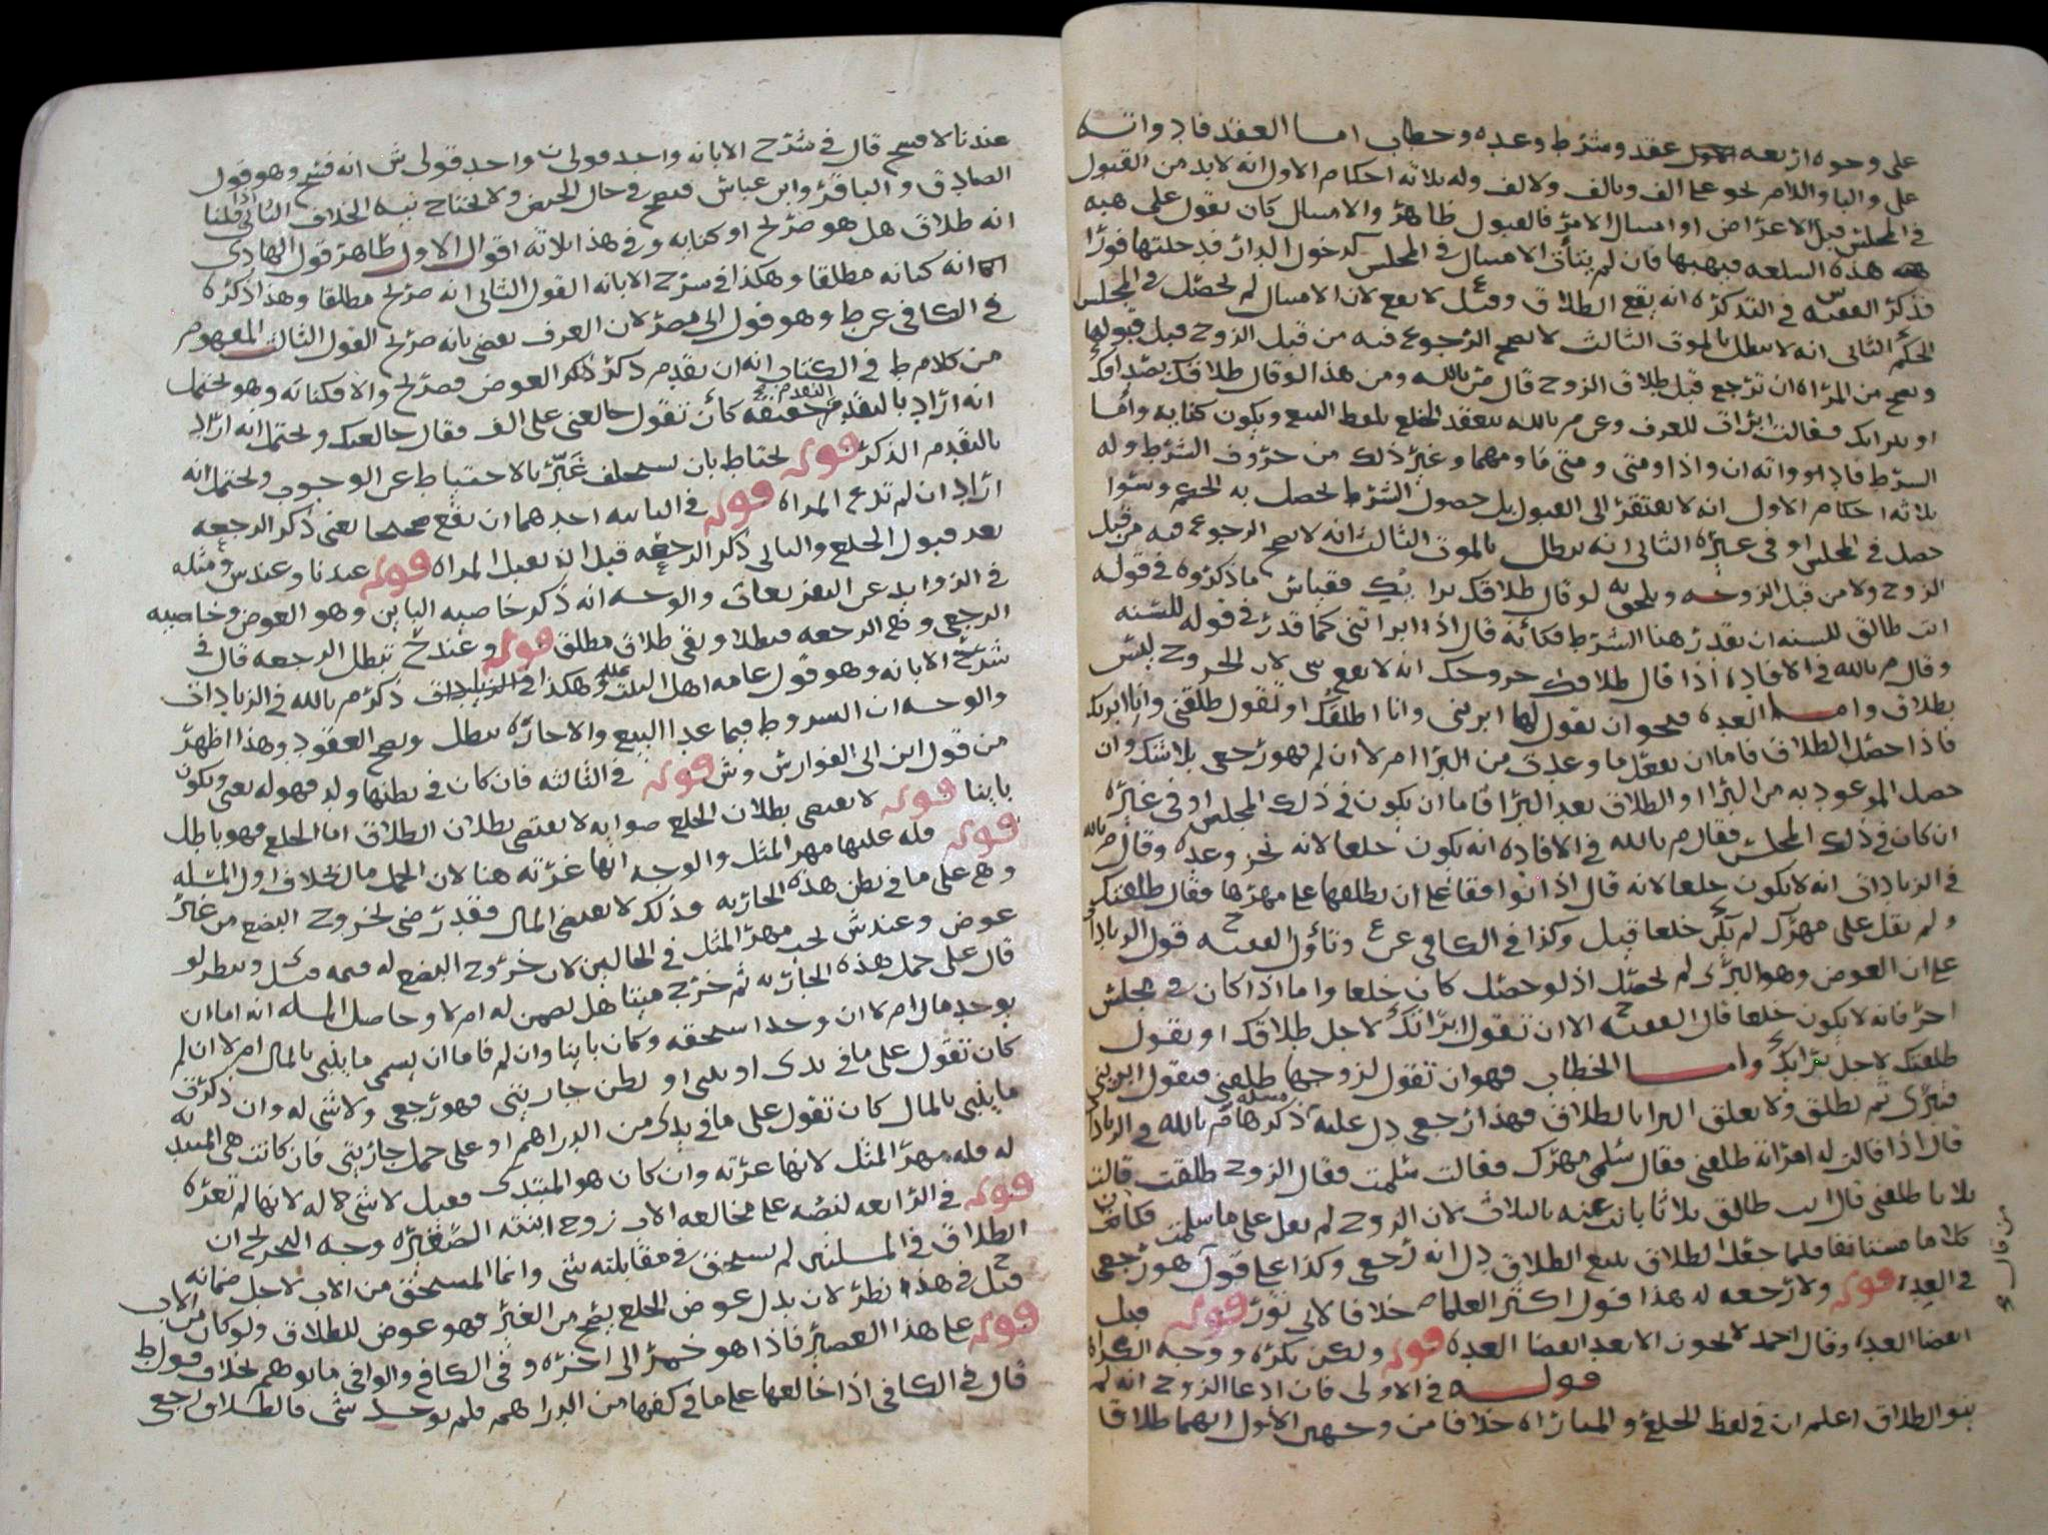 على وجوه اربعه عقد وشرط وعده وخطاب اما العقد فادواته
على والبا واللام نحو على الف وبالف ولالف وله ثلاثه احكام الاول انه لابد من القبول
في المجلس قبل الاعراض او امتثال الامر فالقبول ظاهر والامتثال كان تقول على هبه
هذه السلعه فيهبها فان لم يتأتى الامتثال في المجلس كدخول الدار فدخلتها فورا
فذكر الفقيه س في التذكره انه يقع الطلاق وقيل ع لا يقع لان الامتثال لم يحصل في المجلس
الحكم الثاني انه لا يبطل بالموت الثالث لا يصح الرجوع فيه من قبل الزوج قبل قبولها
ويصح من المراه ان ترجع قبل طلاق الزوج قال م بالله ومن هذا لو قال طلاقك بصداقك
فقالت ابرات للعرف وعن م بالله ينعقد الخلع بلفظ البيع ويكون كنايه واما
الشرط فادواته ان واذا ومتى ومتى ما ومهما وغير ذلك من حروف الشرط وله
ثلاثه احكام الاول انه لا يفتقر الى القبول بل حصول الشرط يحصل به الحكم وسوا
حصل في المجلس او في غيره الثاني انه يبطل بالموت الثالث انه لا يصح الرجوع فيه من قبل
الزوج ولا من قبل الزوجه ويلحق به لو قال طلاقك فقياس ما ذكروه في قوله
انت طالق للسنه ان يقدر هنا الشرط فكأنه قال اذا ابراتني كما قدر في قوله للسنه
وقال م بالله في الافاده اذا قال طلاقك خروجك انه لا يقع شي لان الخروج ليس
بطلاق واما العده فنحو ان يقول لها ابريني وانا اطلقك او تقول طلقني وانا ابريك
فاذا حصل الطلاق فاما ان تفعل ما وعدت من البرا ام لا ان لم فهو رجعي بلا شك وان
حصل الموعود به من البرا او الطلاق بعد البرا فاما ان يكون في ذلك المجلس او في غيره
ان كان في ذلك المجلس فقال م بالله في الافاده انه يكون خلعا لانه نجز وعده وقال م بالله
في الزيادات انه لا يكون خلعا لانه قال اذا توافقا على ان يطلقها على مهرها فقال طلقتك
ولم يقل على مهرك لم يكن خلعا قيل وكذا في الكافي عن ع وتأول الفقيه ح قول الزيادات
على ان العوض وهو البرى لم يحصل اذ لو حصل كان خلعا واما اذا كان في مجلس
اخر فانه لا يكون خلعا قال الفقيه ح الا ان تقول ابراتك لاجل طلاقك او يقول
طلقتك لاجل برايك واما الخطاب فهو ان تقول لزوجها طلقني فيقول ابريني
فتبرى ثم يطلق ولا يعلق البرا بالطلاق فهذا رجعي دل عليه مسله ذكرها م بالله في الزيادات
قال اذا قالت له امراته طلقني فقال سلمي مهرك فقالت سلمت فقال الزوج طلقت قالت
ثلاثا طلقني قال انت طالق ثلاثا بانت منه بالثلاث لان الزوج لم يقل على ما سلمت فكان
كلاما مستانفا فلما جعل الطلاق يتبع الطلاق دل انه رجعي وكذا على قول هو رجعي
في العده قوله ولا رجعه له هذا قول اكثر العلما خلافا لابي ثور قوله قبل
انقضا العده وقال احمد لا يجوز الا بعد انقضا العده قوله ولكن يكره ووجه الكراه
قوله في الاولى فان ادعا الزوج انه لم
ينو الطلاق اعلم ان في لفظ الخلع والمباراه خلافا من وجهين الاول انهما طلاقا
عندنا لا فسخ قال في شرح الابانه واحد قولي ن واحد قولي ش انه فسخ وهو قول
الصادق والباقر وابن عباس فيصح في حال الحيض ولا يحتاج نيه الخلاف الثاني اذا قلنا
انه طلاق هل هو صريح او كنايه وفي هذا ثلاثه اقوال الاول ظاهر قول الهادي
انه كنايه مطلقا وهكذا في شرح الابانه القول الثاني انه صريح مطلقا وهذا ذكره
في الكافي عن ط وهو قول ابي مضر لان العرف يقضي بانه صريح القول الثالث المفهوم
من كلام ط في الكتاب انه ان تقدم ذكر العوض فصريح والا فكنايه وهو يحتمل
انه اراد بالتقدم حقيقه التقدم كأن تقول خالعني على الف فقال خالعتك ويحتمل انه اراد
بالتقدم الذكر قوله يحتاط بان يستحلف عبر بالاحتياط عن الوجوب ويحتمل انه
اراد ان لم تدع المراه قوله في الثانيه احدهما ان يقع صحيحا يعني ذكر الرجعه
بعد قبول الخلع والثاني ذكر الرجعه قبل ان تقبل المراه قوله عندنا وعند س ومثله
في الزوايد عن والوجه انه ذكر خاصيه الباين وهو العوض وخاصيه
الرجعي وهي الرجعه فبطلا وبقي طلاق مطلق قوله وعند ح تبطل الرجعه قال في
شرح الابانه وهو قول عامه اهل البيت عليهم وهكذا ذكر م بالله في الزيادات
والوجه ان الشروط فيما عدا البيع والاجاره تبطل ويصح العقود وهذا اظهر
من قول ابن ابي الفوارس وش قوله في الثالثه فان كان في بطنها ولد فهو له يعني ويكون
باينا قوله لا يقتضي بطلان الخلع صوابه لا يقتضي بطلان الطلاق اما الخلع فهو باطل
قوله فله عليها مهر المثل والوجه انها غرته هنا لان الحمل مال بخلاف اول المسله
وهي على ما في بطن هذه الجاريه فذلك لا يقتضي المال فقد رضي بخروج البضع من غير
عوض وعند ش يجب مهر المثل في الحالين لان خروج البضع له قيمه قيل وينظر لو
قال على حمل هذه الجاريه ثم خرج ميتا هل يضمن له ام لا وحاصل المسله انه اما ان
يوجد مال ام لا ان وجد استحقه وكان باينا وان لم فاما ان يسمى ما ينبي بالمال ام لا ان لم
كان تقول على ما في يدي او بيتي او بطن جاريتي فهو رجعي ولا شي له وان ذكرت
ما ينبي بالمال كان تقول على ما في يدي من الدراهم او على حمل جاريتي فان كانت هي المبتديه
له فله مهر المثل لانها غرته وان كان هو المبتدي فقيل لا شي له لانها لم تغره
قوله في الرابعه لنصه على مخالعه الاب زوج ابنته الصغيره وجه التخريج ان
الطلاق في المسلتين لم يستحق في مقابلته شي وانما المستحق من الاب لاجل ضمانه
قيل ح في هذا نظر لان بدل عوض الخلع يصح من الغير فهو عوض للطلاق ولو كان من الاب
قوله على هذا العصير فاذا هو خمر الى اخره وفي الكافي والوافي ما يوهم بخلاف قول ط
قال في الكافي اذا خالعها على ما في كفها من الدراهم فلم يوجد شي فالطلاق رجعي